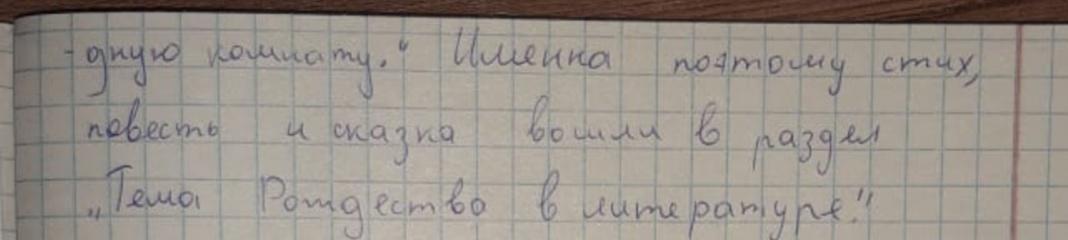 -дную комнату." Именна поэтому стих,
повесть и сказка вошли в раздел
„Тема Рождество в литературе."